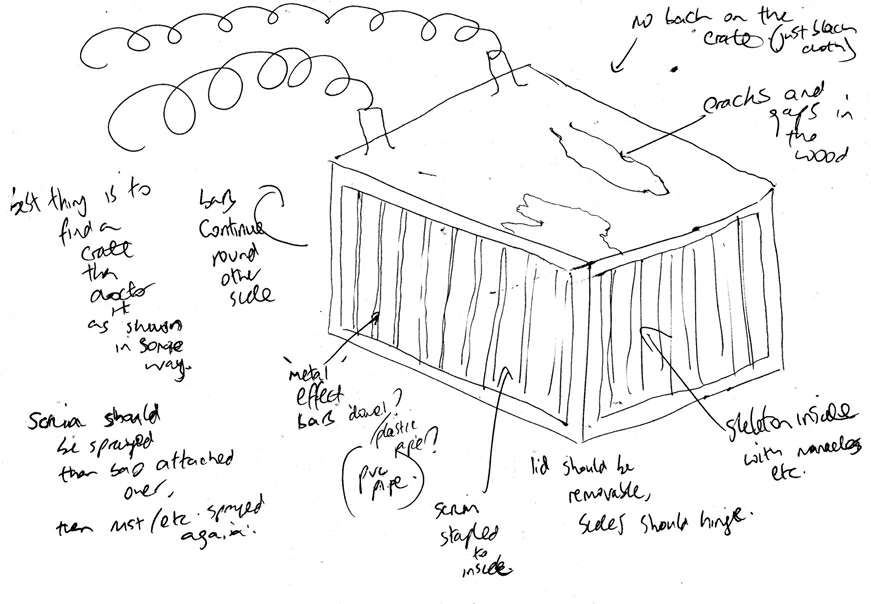 no back on the
crate. (just black
cloth)
cracks and
gaps in
the
wood
best thing is to
find a
crate
then
doctor
it
as shown
in some
way.
bars
continue
round
other
side
'metal'
effect
bars dowel?
/plastic
pipe?
pvc
pipe.
scrim should
be sprayed
then bars attached
over,
then rust/etc. sprayed
again.
scrim
stapled
to
inside.
lid should be
removable,
sides should hinge.
skeleton inside
with manacles
etc.